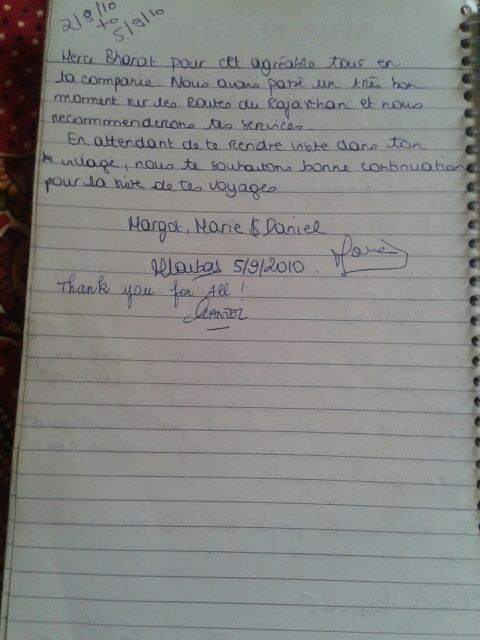 2/9/10
to
5/9/10
Merci Bharat pour cet agréable tour en
ta companie. Nous avons passé un très bon
moment sur les Routes du Rajasthan et nous
recommmenderons tes services.
En attendant de te rendre visite dans ton
village, nous te souhaitons bonne continuation
pour la suite de tes voyages.
Margot, Marie & Daniel
5/9/2010.
Marie
Thank you for All !